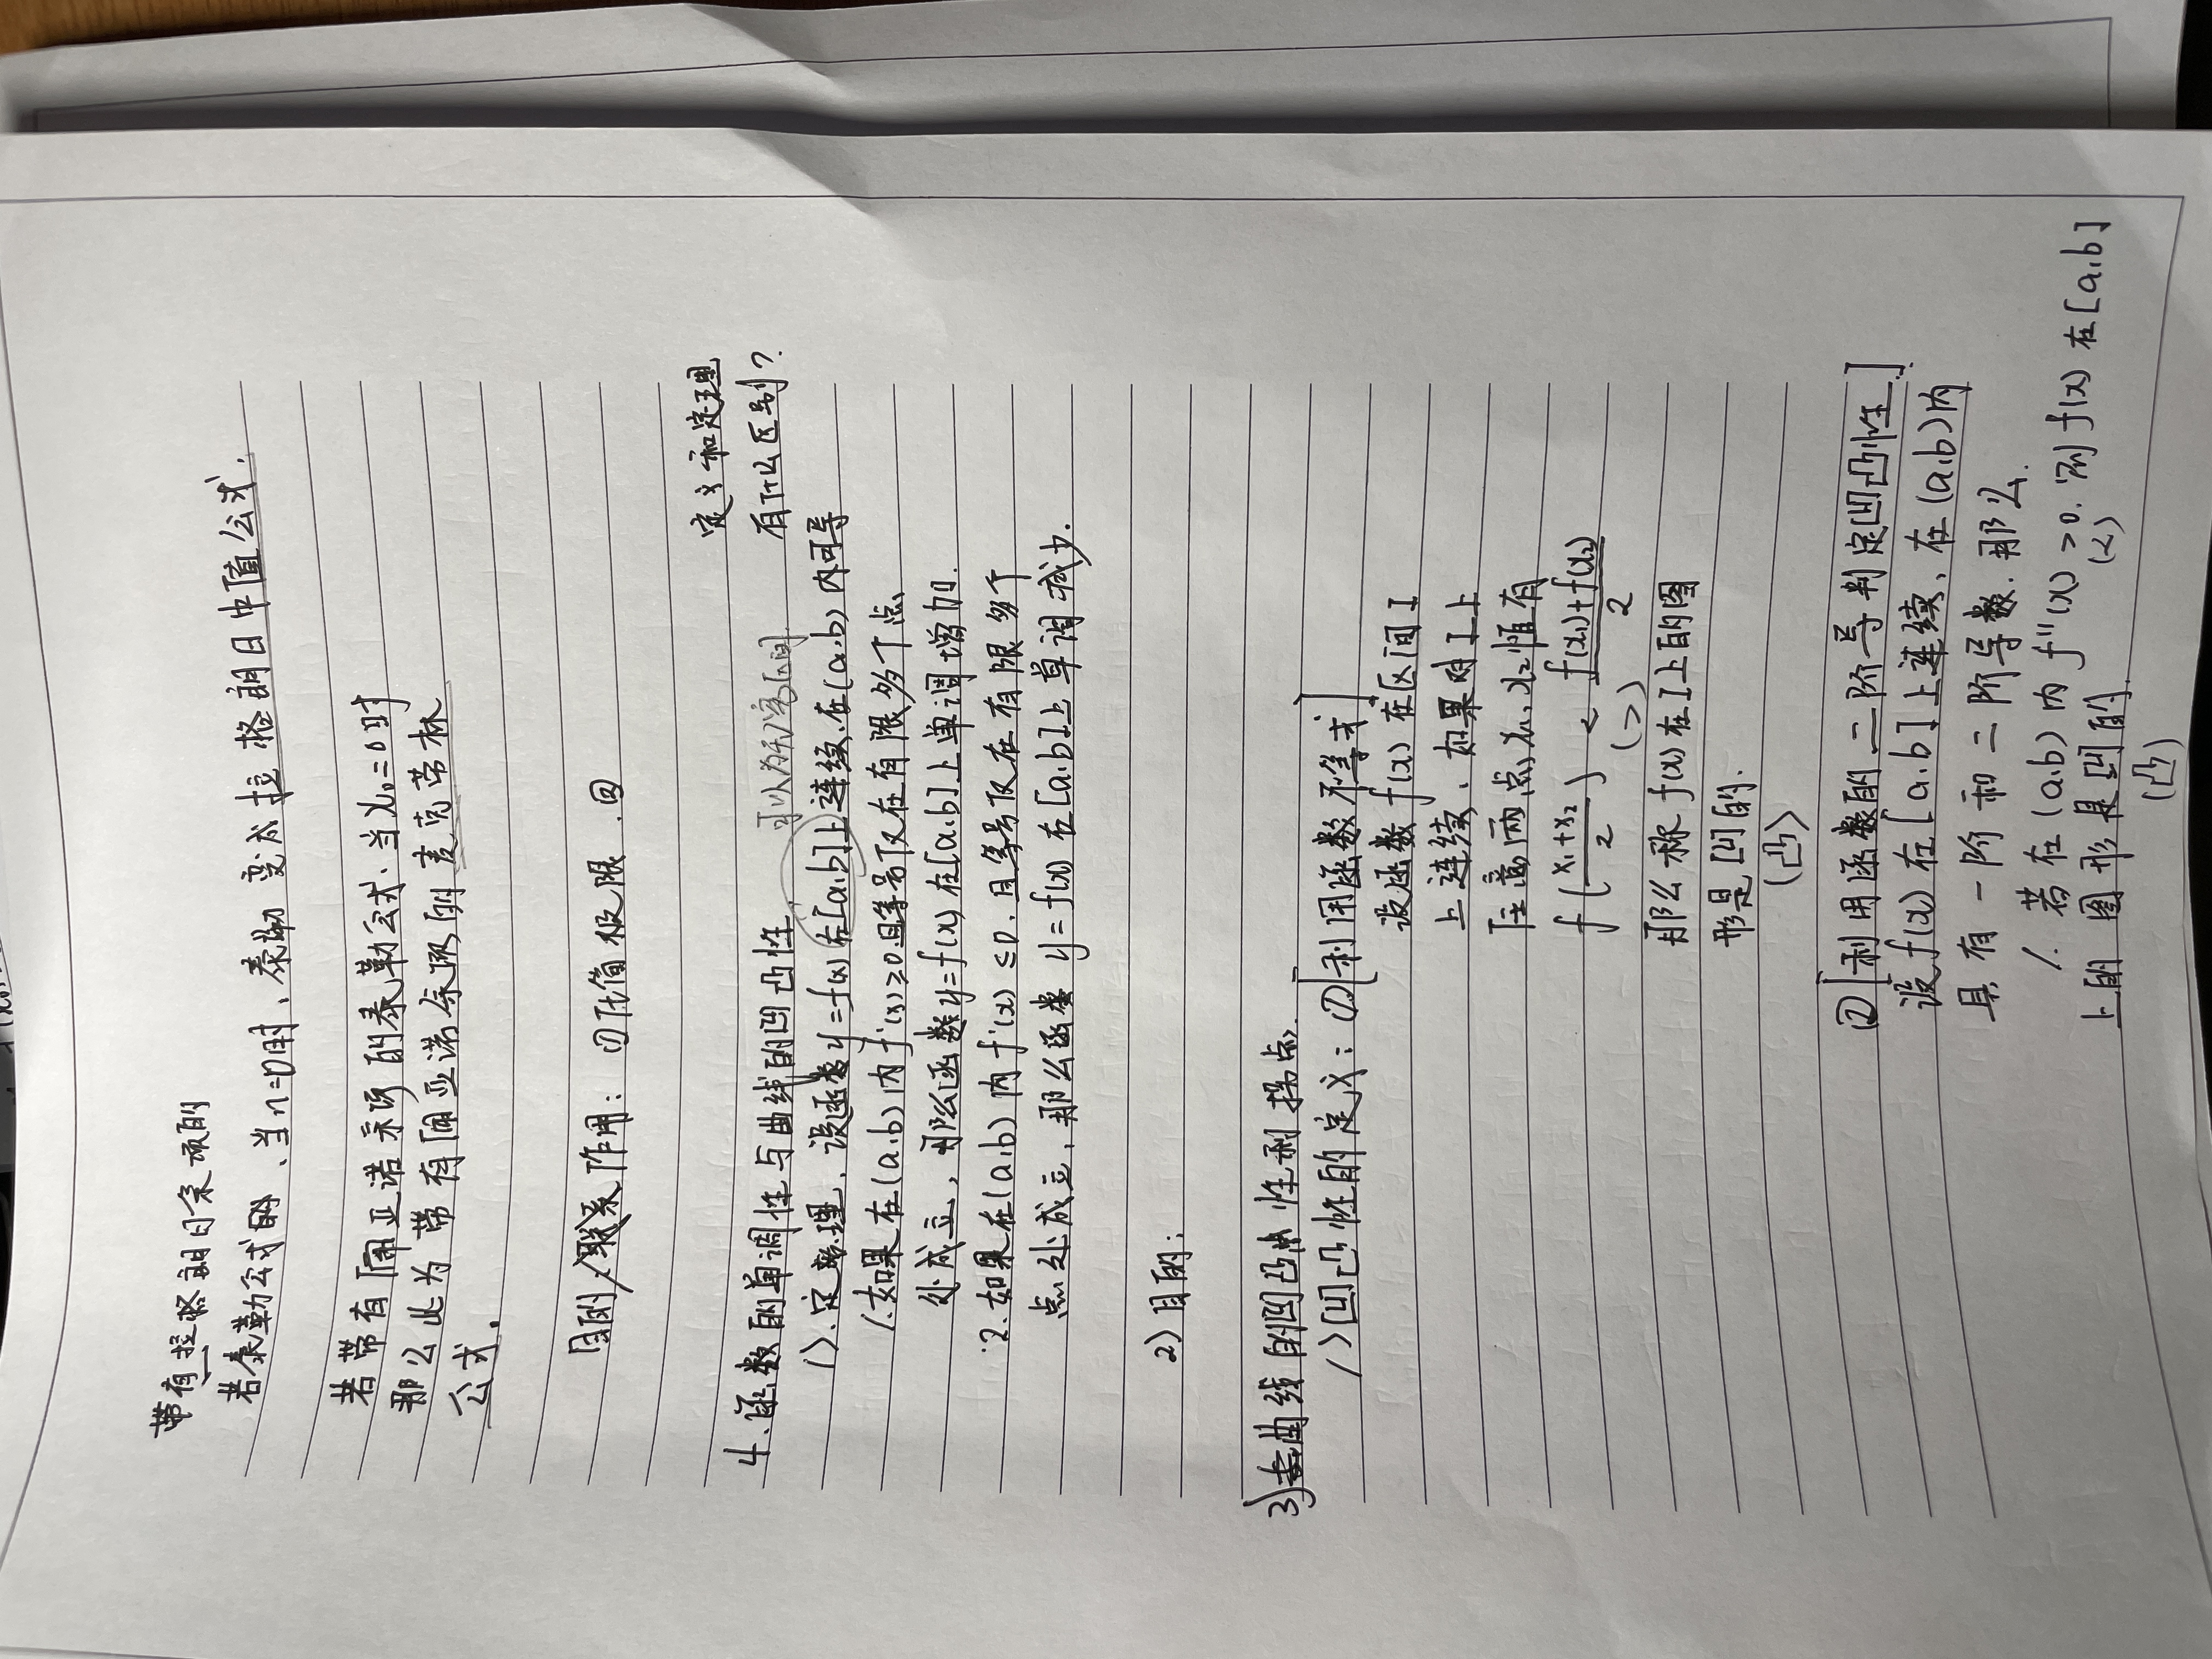 带有拉格朗日余项的
若泰勒公式的、当n=0时,泰勒变成拉格朗日中值公式.
若带有佩亚诺余项的泰勒公式.当x₀=0时
那么此为带有佩亚诺余项的麦克劳林
公式.
目的 联系 作用: ①化简极限.②
定义和定理
有什么区别?
4.函数的单调性与曲线的凹凸性.
可以为无穷区间.
1).定理.设函数y=f(x)在[a,b]上连续.在(a,b)内可导
1.如果在(a,b)内f'(x)≥0且等号仅在有限多个点
处成立,那么函数y=f(x)在[a,b]上单调增加.
2.如果在(a,b)内f'(x)≤0.且等号仅在有限多个
点处成立,那么函数 y=f(x)在[a,b]上单调减少.
2)目的:
3)曲线的凹凸性和拐点.
1)凹凸性的定义:①[利用函数不等式]
设函数f(x)在区间I
上连续,如果对I上
任意两点x₁,x₂恒有
f((x₁+x₂)/2) < (f(x₁)+f(x₂))/2
(>)
那么称f(x)在I上的图
形是凹的.
(凸)
②[利用函数的二阶导判定凹凸性.]
设f(x)在[a,b]上连续,在(a,b)内
具有一阶和二阶导数.那么.
1.若在(a,b)内f''(x)>0.则f(x)在[a,b]
(<)
上的图形是凹的.
(凸)